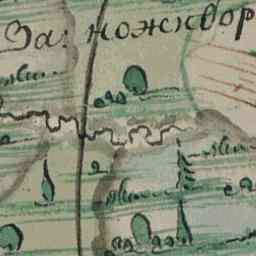 За. ножквор